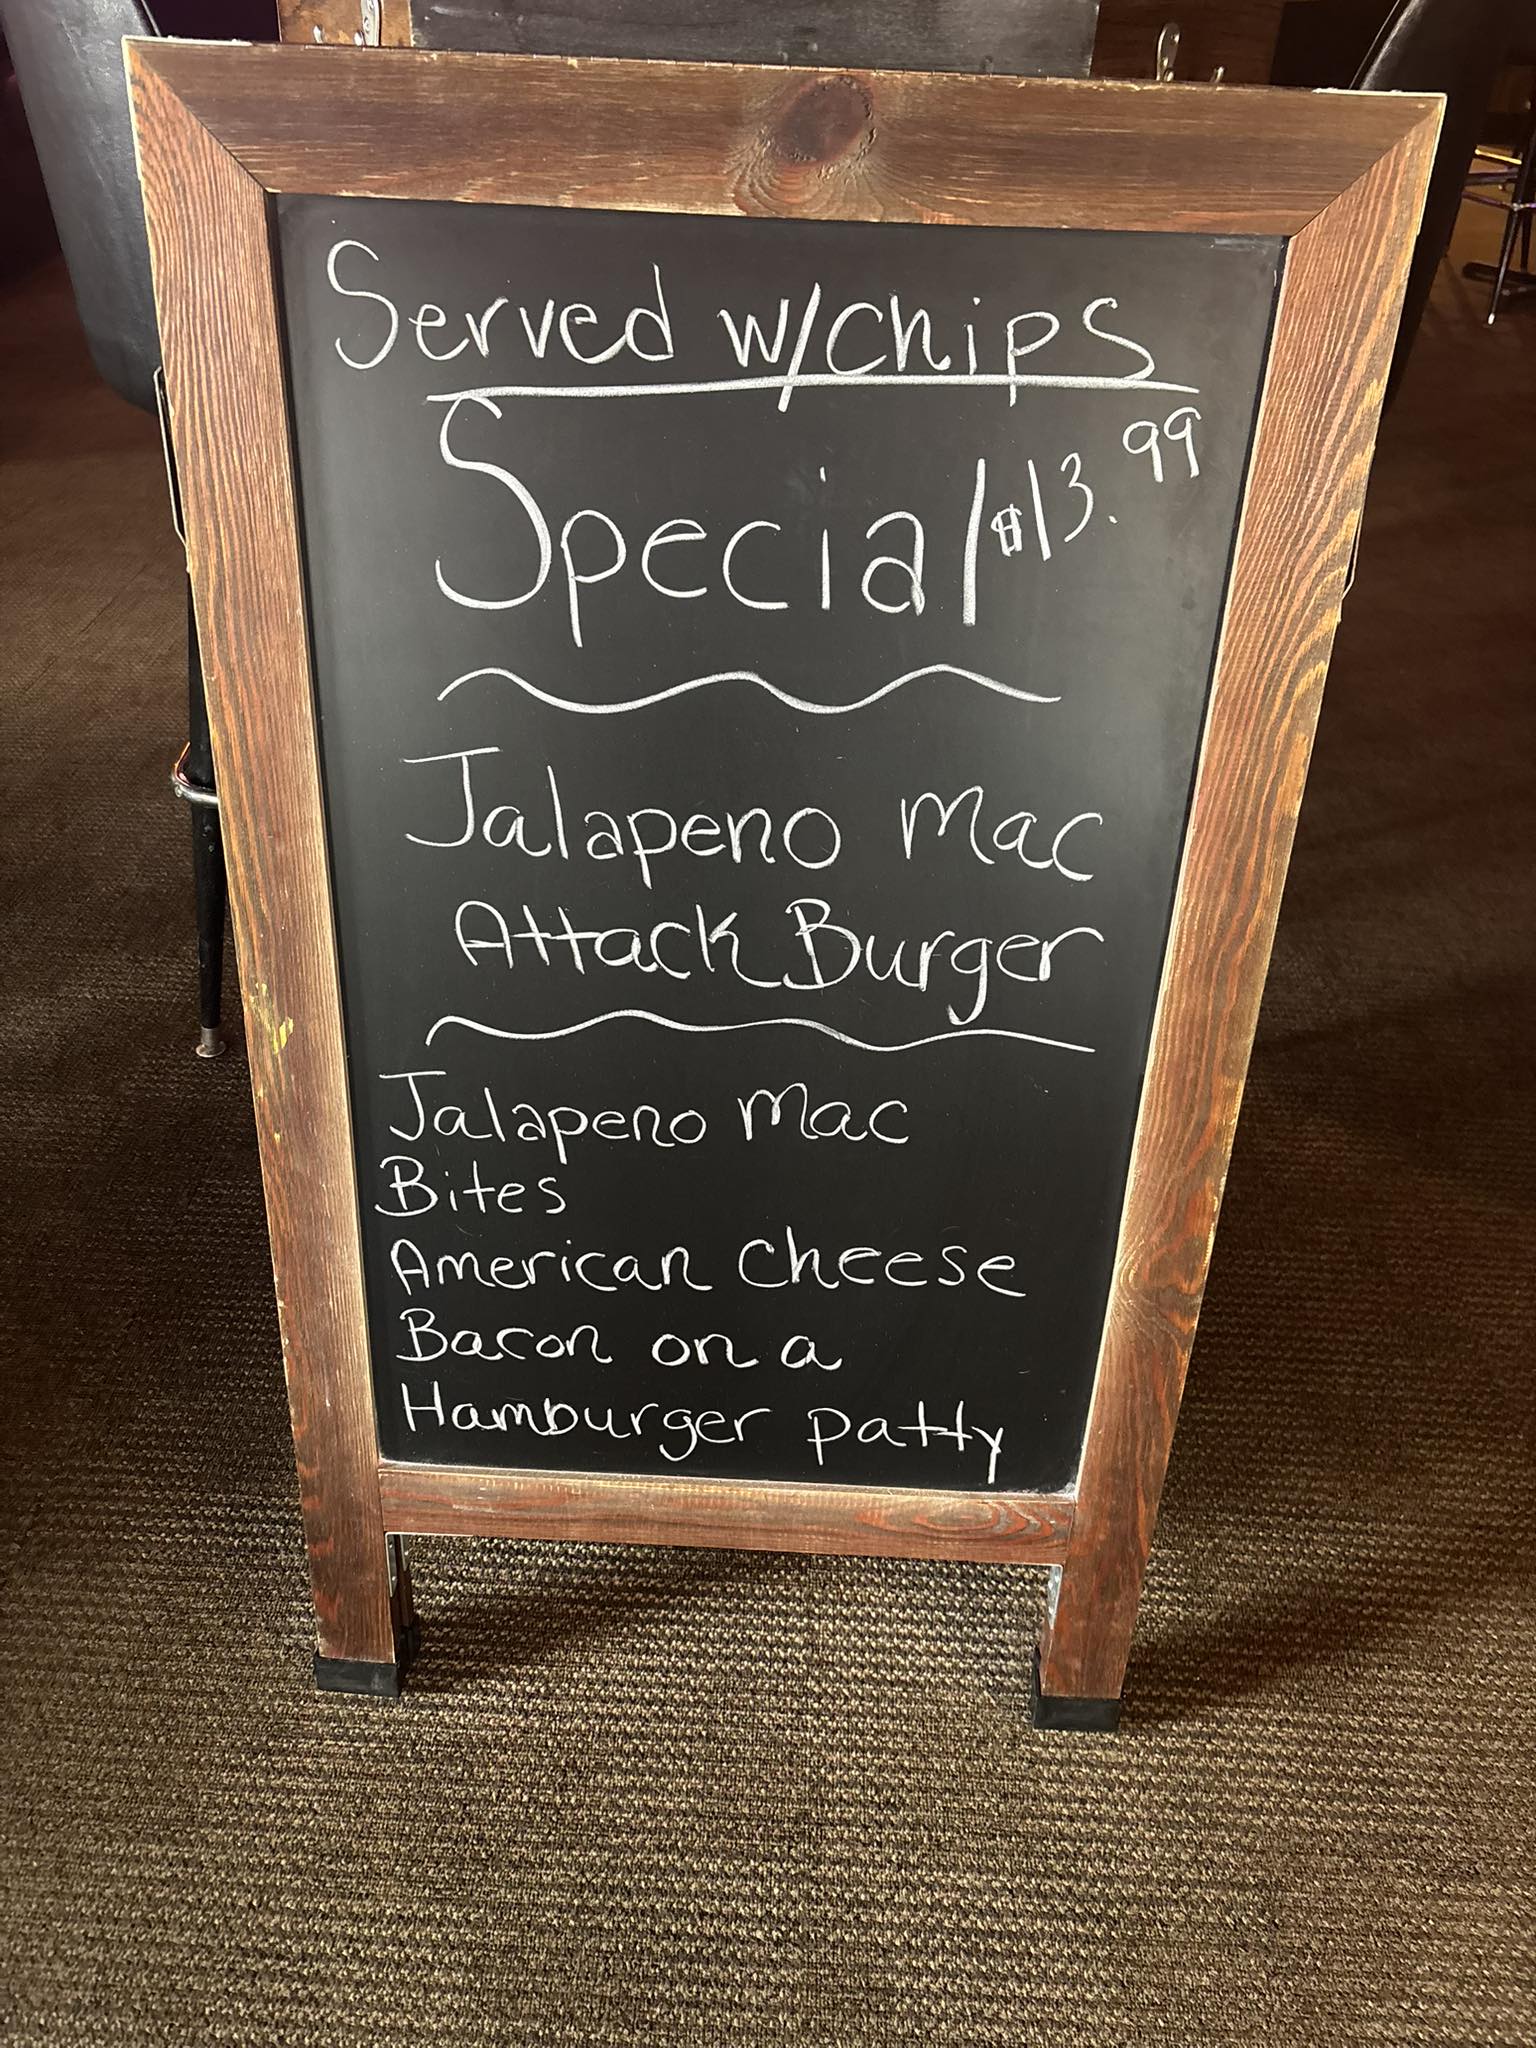 Served w/chips
Special $13.99
Jalapeno Mac
Attack Burger
Jalapeno Mac
Bites
American Cheese
Bacon on a
Hamburger patty